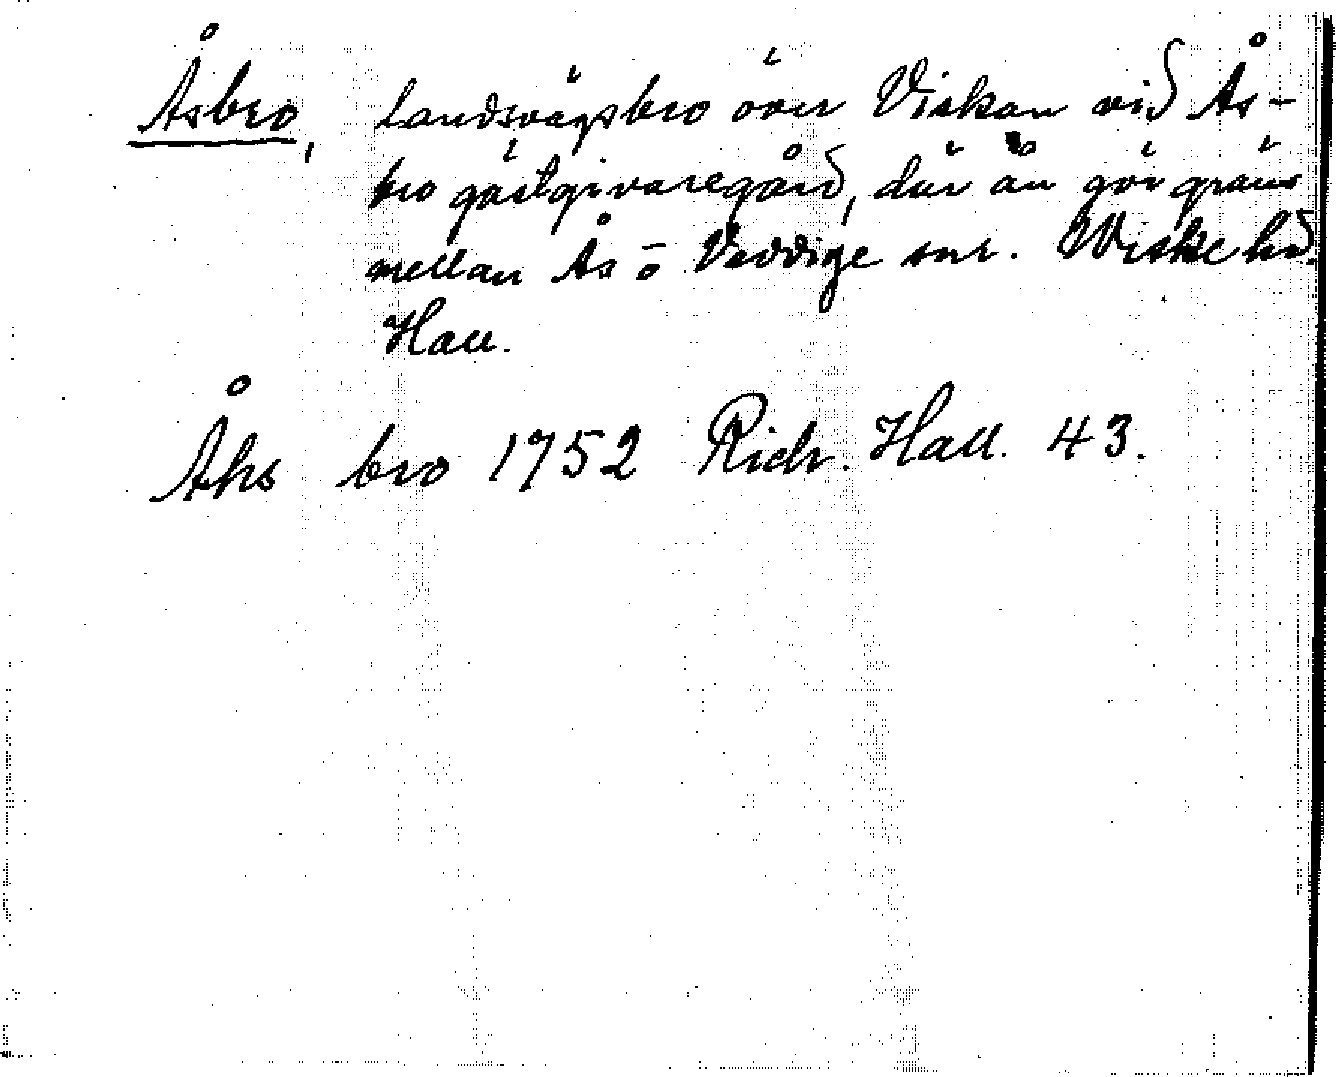 Åsbro, landsvägsbro över Viskan vid Ås-
bro gästgivaregård, där ån gör gräns
mellan Ås o Veddige snr. Viske hd.
Hall.
Åhs bro 1752 Rich. Hall. 43.